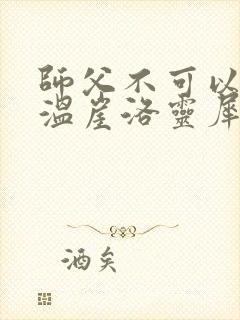 師父不可以
溫崖洛靈犀
酒矣